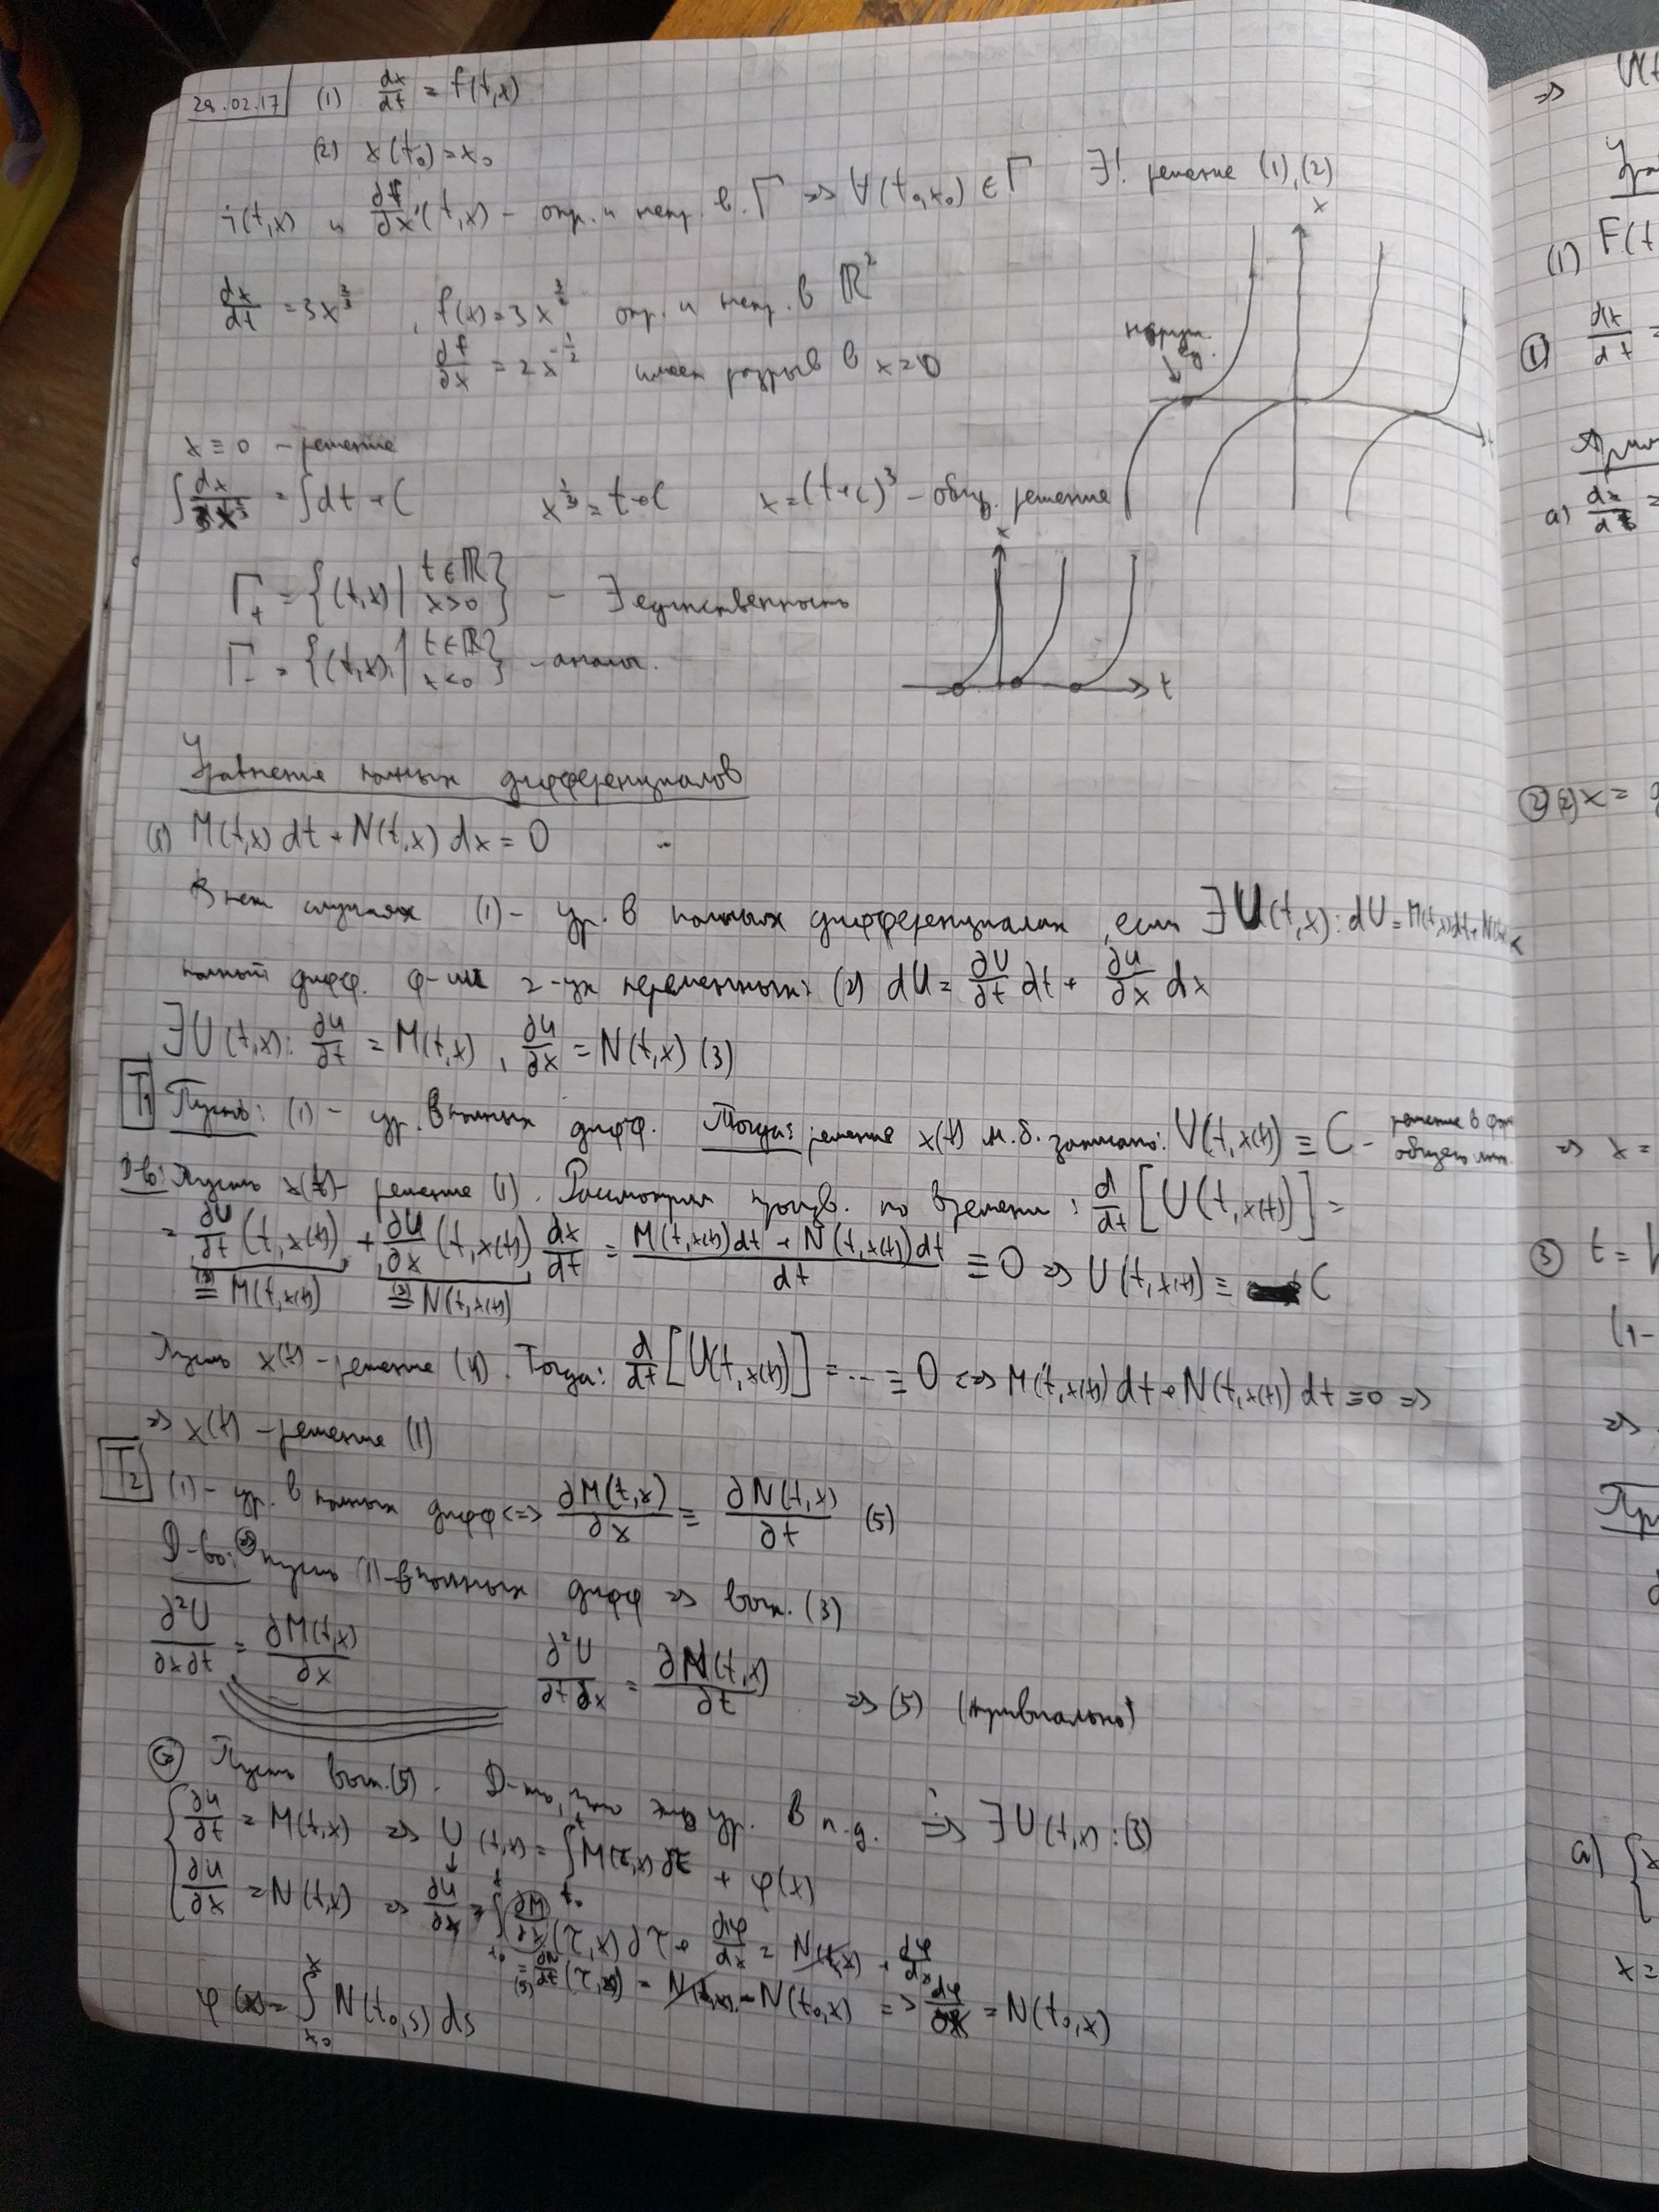 28.02.17 (1) dx/dt = f(t,x)
(2) x(t₀)=x₀
f(t,x) и ∂f/∂x (t,x) – опр. и непр. в Γ => ∀(t₀,x₀) ∈ Γ ∃! решение (1),(2)
dx/dt = 3x^(2/3) , f(x)=3x^(2/3) опр. и непр. в ℝ²
∂f/∂x = 2x^(-1/2) имеет разрыв в x=0
x
наруш.
ед.
t
x ≡ 0 – решение
∫ dx/3x^(2/3) = ∫dt + C x^(1/3) = t+C x=(t+c)³ – общ. решение
Γ₊ = {(t,x) | t∈ℝ x>0} – ∃ единственность
Γ₋ = {(t,x) | t∈ℝ x<0} – аналог.
x
t
Уравнение полных дифференциалов
(1) M(t,x) dt + N(t,x) dx = 0
В нек случаях (1) – ур. в полных дифференциалах, если ∃U(t,x): dU = M(t,x)dt + N(t,x)dx
полный дифф. ф-ии 2-ух переменных: (2) dU = ∂U/∂t dt + ∂u/∂x dx
∃U(t,x): ∂u/∂t = M(t,x) , ∂u/∂x = N(t,x) (3)
T1 Пусть: (1) – ур. в полных дифф. Тогда: решение x(t) м.б. записано: U(t,x(t)) ≡ C – решение в
общего
Д-во: Пусть x(t) – решение (1). Рассмотрим произв. по времени: d/dt [U(t,x(t))] =
= ∂U/∂t (t,x(t)) + ∂U/∂x (t,x(t)) dx/dt = M(t,x(t))dt + N(t,x(t))dt / dt ≡ 0 => U(t,x(t)) ≡ C
(3)= M(t,x(t)) (3)= N(t,x(t))
Пусть x(t) – решение (4). Тогда: d/dt [U(t,x(t))] = ... ≡ 0 <=> M(t,x(t)) dt + N(t,x(t)) dt ≡ 0 =>
=> x(t) – решение (1)
T2 (1) – ур. в полных дифф <=> ∂M(t,x)/∂x ≡ ∂N(t,x)/∂t (5)
Д-во: => пусть (1) – в полных дифф => вып. (3)
∂²U/∂x∂t = ∂M(t,x)/∂x ∂²U/∂t∂x = ∂N(t,x)/∂t => (5) (тривиально)
<= Пусть вып. (5). Д-ть, что ур. в п.д. => ∃U(t,x): (3)
{ ∂u/∂t = M(t,x) => U(t,x) = ∫ₜ₀ᵗ M(τ,x) dτ + φ(x)
∂u/∂x = N(t,x) => ∂u/∂x = ∫ₜ₀ᵗ ∂M/∂x (τ,x) dτ + dφ/dx = N(t,x) + dφ/dx
=(5) ∂N/∂t (τ,x) = N(t,x) – N(t₀,x) => dφ/dx = N(t₀,x)
φ(x) = ∫ₓ₀ˣ N(t₀,s) ds
=> U(t
(1) F(t
① dx/dt =
а) dx/dt =
② (2) x =
=> x =
③ t =
(1-
=>
а) { x
x =